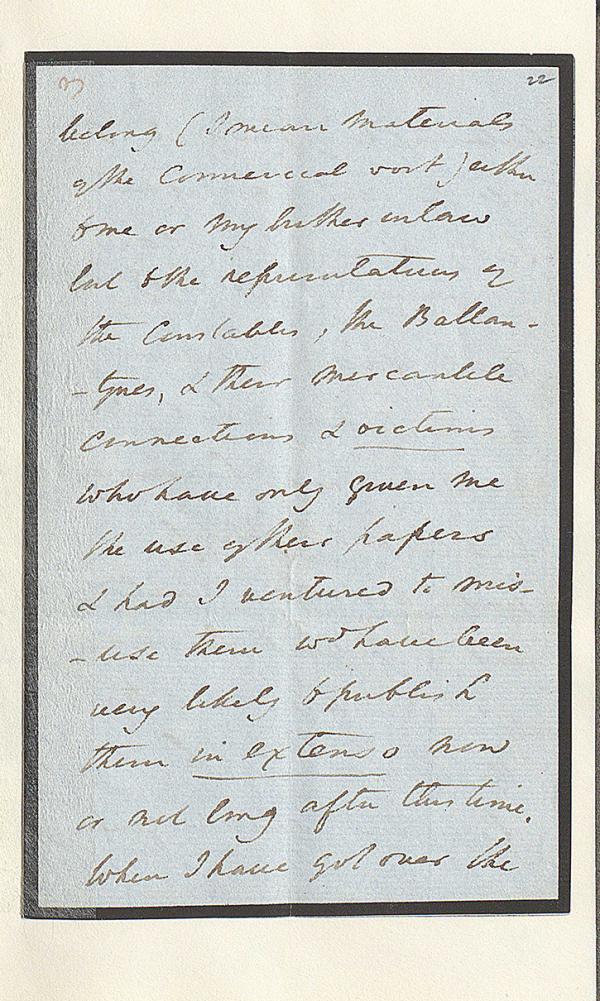 3
22
belong (I mean materials
of the Commercial sort) either
to me or my brother in law
but to the representatives of
the Constables, the Ballan-
-tynes, & their mercantile
connections & victims
who have only given me
the use of their papers
& had I ventured to mis-
-use them wd have been
very likely to publish
them in extenso now
or not long after this time.
When I have got over the